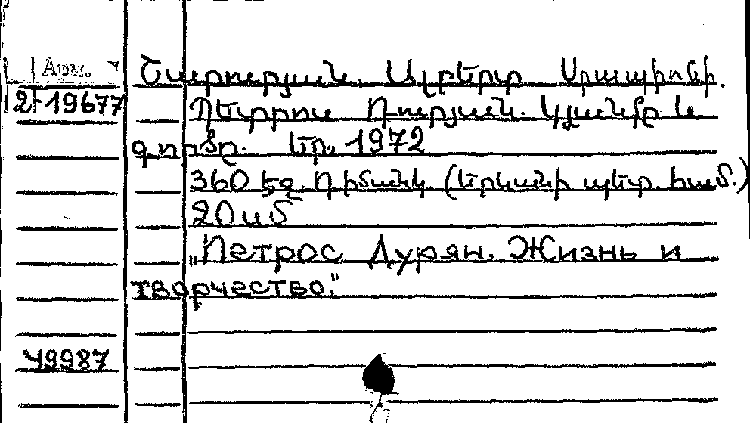 Արմ.
Շարուրյան. Ալբերտ Սրապիոնի.
2-19677 Պետրոս Դուրյան. Կյանքը և
գործը. Եր. 1972
360 էջ. Դիմանկ (Երևանի պետ. համ.)
20սմ
„Петрос Дурян. Жизнь и
творчество."
49987